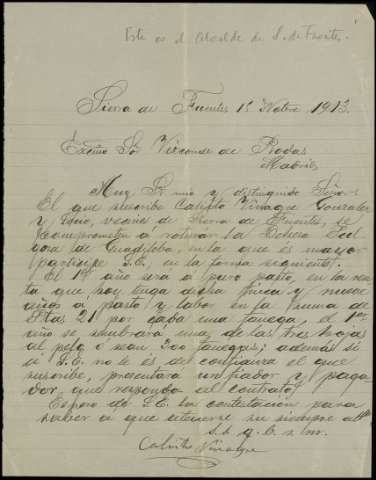 Este es el Alcalde de S. de Fuentes.
Sierra de Fuentes 15 1913.
Excmo Sor Vizconde de Rodas
Madrid
Muy Sr mio y distinguido Señor:
El que suscribe Calixto Vinagre Gonzalez
y vecino de Sierra de Fuentes, se
compromete á roturar la Dehesa
de en la que es mayor
participe S.E. en la forma siguiente:
El 1er año será á puro pasto, en la ren-
ta que hoy tenga dicha finca y nueve
años á pasto y labor en la suma de
Ptas 21 por cada una fanega, el 1er
año se sembrará una de las tres hojas
al pelo ó sean 300 fanegas; además si
á S.E. no le es de confianza el que
suscribe, presentará un fiador y paga-
dor, que responda al contrato.
Espero de S.E. su contestación para
saber á que atenerse su siempre atto
s.s. q. b. s. m.
Calixto Vinagre